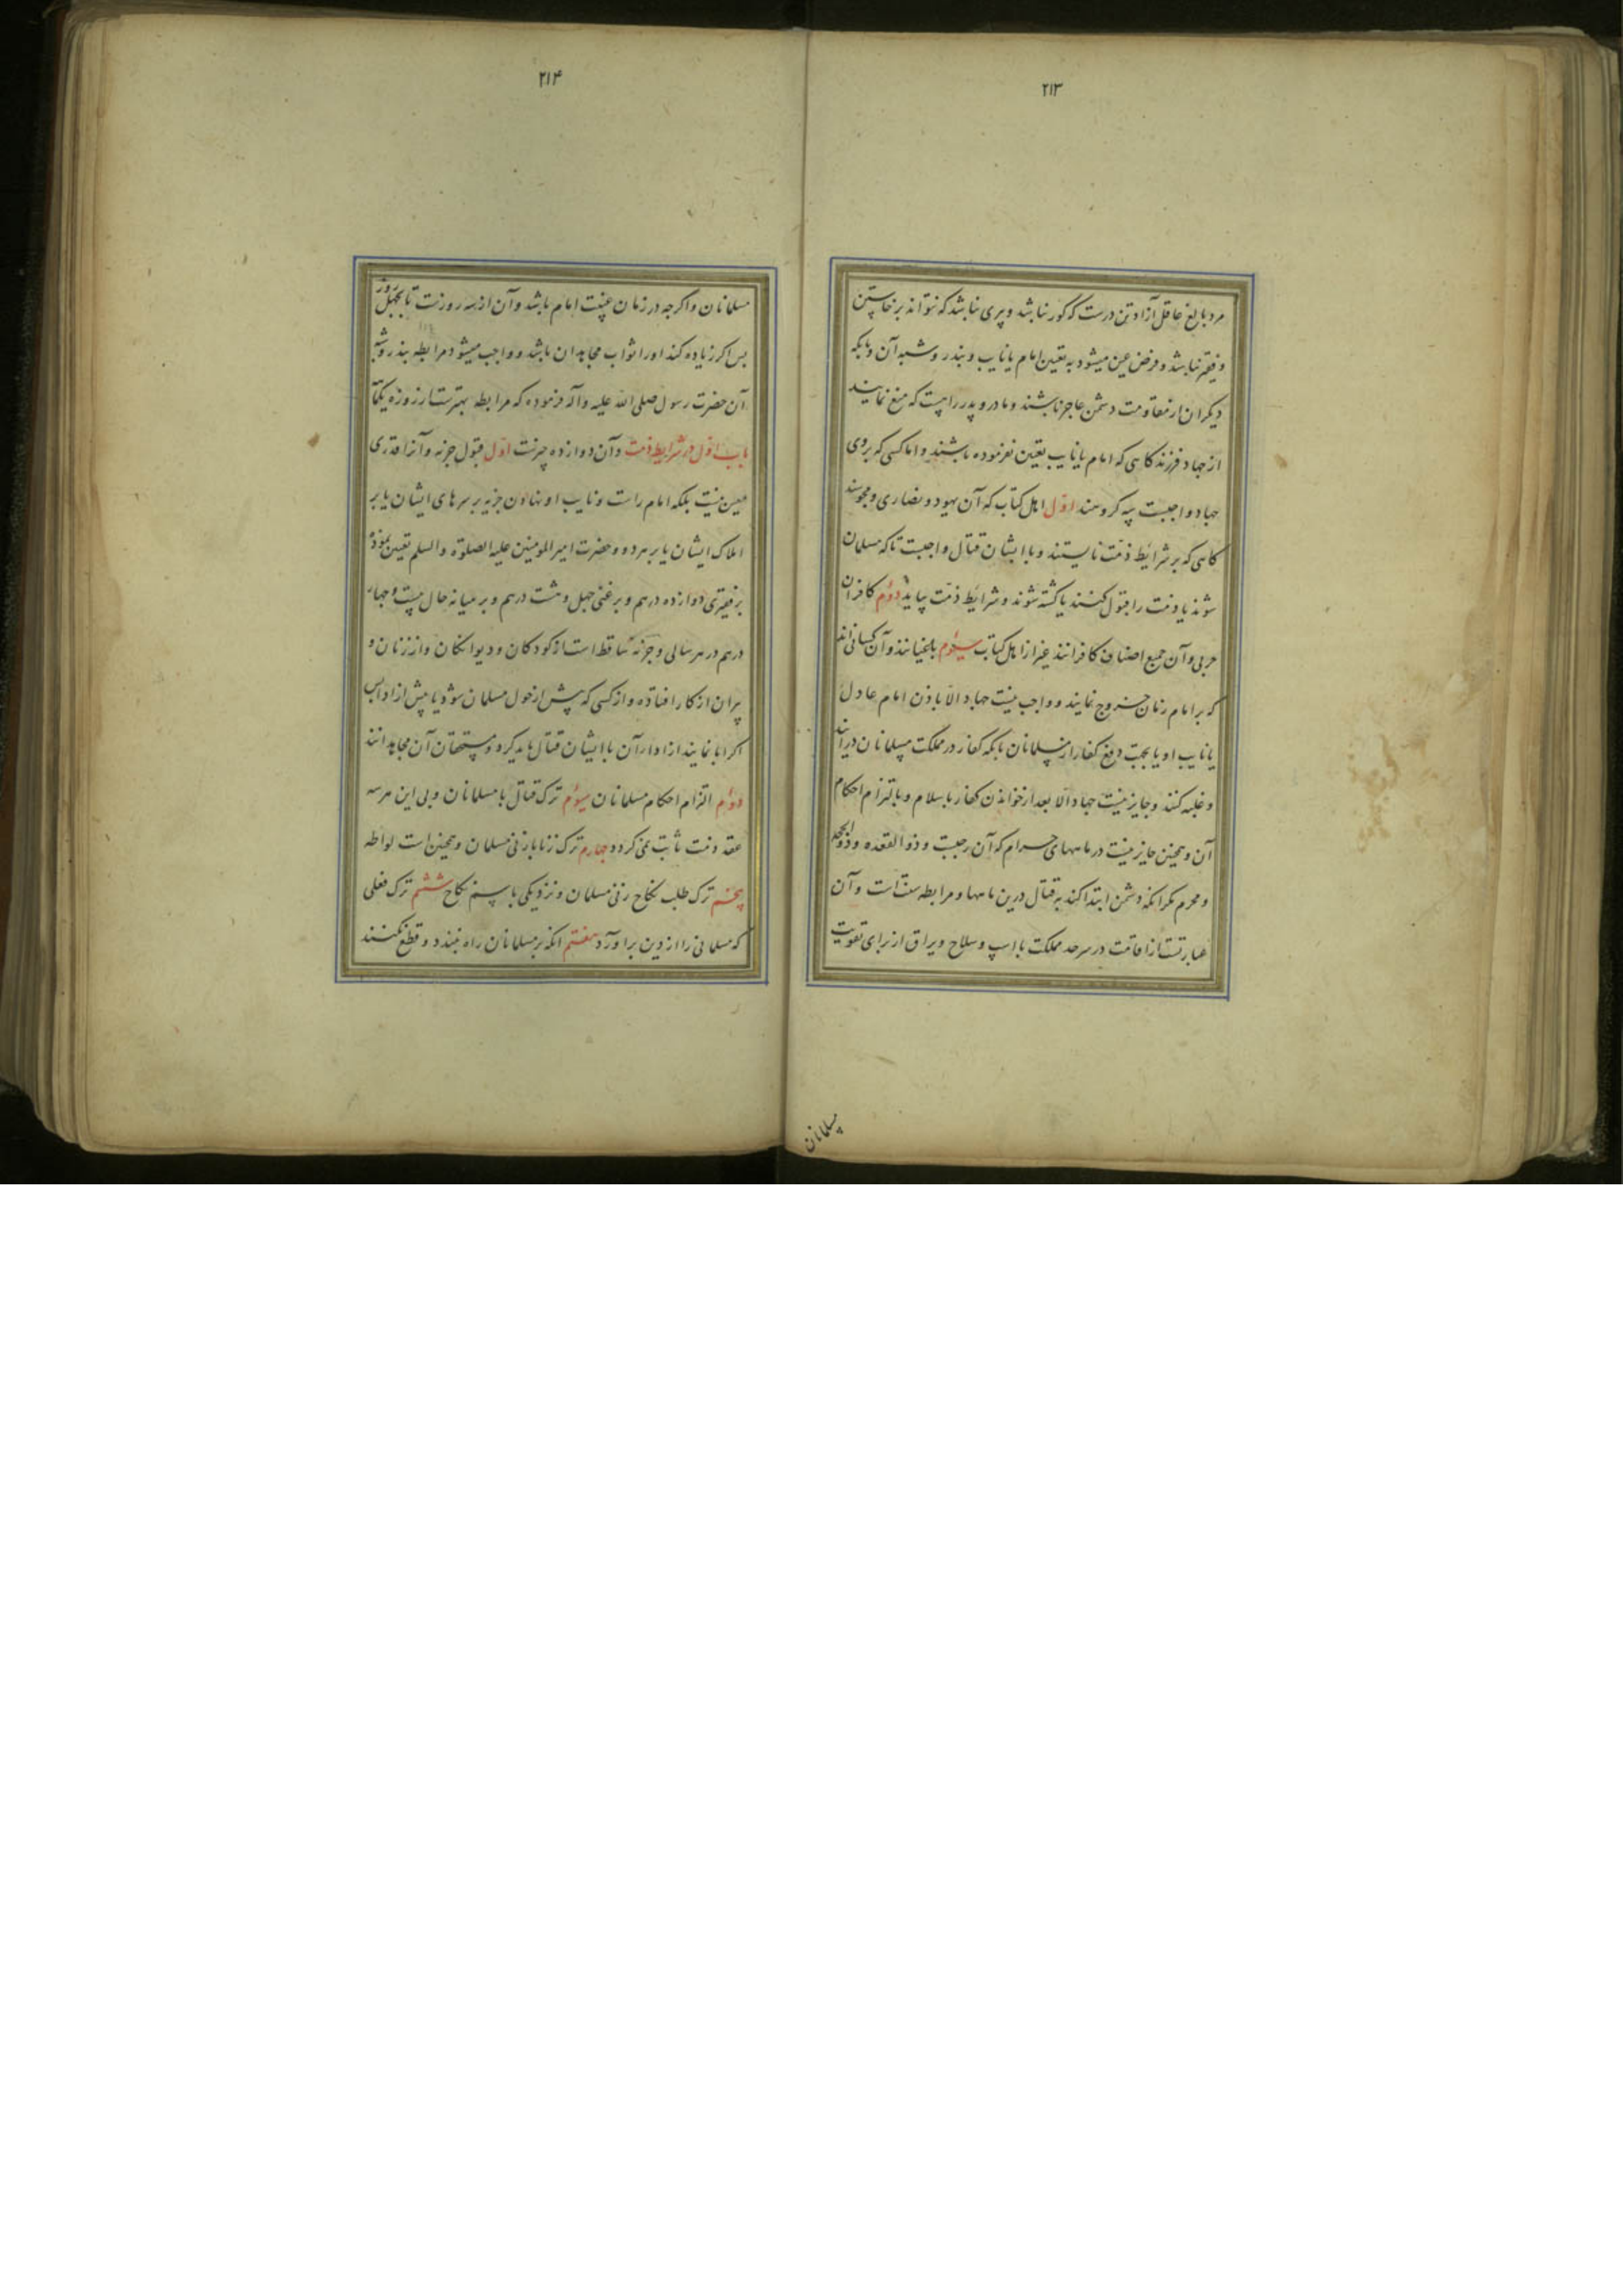 ۲۱۳
مرد بالغ عاقل آزاد تن درست که کور نباشد و پیری نباشد که نتواند برخاستن
و فقیر نباشد و فرض عین میشود به تعیین امام یا نایب و بنذر و شبه آن و بانکه
دیکران از مقاومت دشمن عاجز باشند و مادر و پدر را هست که منع نمایند
از جهاد فرزند کاهی که امام یا نایب تعیین نفرموده باشند و اما کسی که بروی
جهاد واجبست سه کروهند اول اهل کتاب که آن یهود و نصاری و مجوسند
کاهی که بر شرایط ذمت نایستند و با ایشان قتال واجبست تا که مسلمان
شوند یا ذمت را قبول کنند یا کشته شوند و شرایط ذمت بیاید دوم کافران
حربی و آن جمیع اصناف کافرانند غیر از اهل کتاب سیوم باغیانند و آن کسانی‌اند
که بر امام زمان خروج نمایند و واجب نیست جهاد الا باذن امام عادل
یا نایب او یا بجهت دفع کفار از مسلمانان بانکه کفار در مملکت مسلمانان درآیند
و غلبه کنند و جایز نیست جهاد الا بعد از خواندن کفار باسلام و بالتزام احکام
آن و همچنین جایز نیست در ماههای حرام که آن رجبست و ذوالقعده و ذوالحجه
و محرم مکر آنکه دشمن ابتدا کند به قتال درین ماهها و مرابطه سنت است و آن
عبارتست از اقامت در سرحد مملکت با اسپ و سلاح و یراق از برای تقویت
مسلمانان
۲۱۴
مسلمانان و اکرچه در زمان غیبت امام باشد و آن از سه روزست تا بچهل روز
پس اکر زیاده کند او را ثواب مجاهدان باشد و واجب میشود مرابطه بنذر و شبه
آن حضرت رسول صلی الله علیه و آله فرموده که مرابطه بهترست از روزه یکماه
باب اول در شرایط ذمت و آن دوازده چیزست اول قبول جزیه و آنرا قدری
معین نیست بلکه امام راست و نایب او نهادن جزیه بر سرهای ایشان یا بر
املاک ایشان یا بر هر دو و حضرت امیرالمومنین علیه الصلوة والسلم تعیین نموده
بر فقیری دوازده درهم و بر غنی چهل و هشت درهم و بر میانه حال بیست و چهار
درهم در هر سالی و جزیه ساقط است از کودکان و دیوانکان و از زنان و
پیران از کار افتاده و از کسی که پیش از حول مسلمان شود یا پیش از ادا پس
اکر ابا نمایند از ادا آن با ایشان قتال باید کرد و مستحقان آن مجاهدانند
دوم التزام احکام مسلمانان سیوم ترک قتال با مسلمانان و بی این هر سه
عقد ذمت ثابت نمی کردد چهارم ترک زنا با زن مسلمان و همچنین است لواطه
پنجم ترک طلب نکاح زن مسلمان و نزدیکی باسم نکاح ششم ترک فعلی
که مسلمانی را از دین برآورد هفتم آنکه بر مسلمانان راه نبندد و قطع نکنند